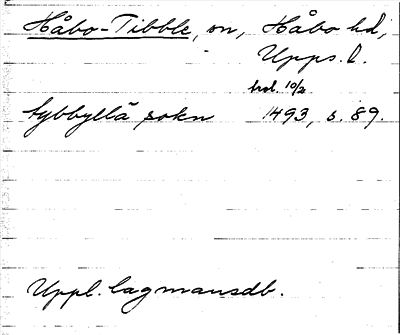 Håbo-Tibble, sn, Håbo hd,
Upps. l.
hol. 10/2
tybbyllä sokn 1493, s. 89.
Uppl. lagmansdb.